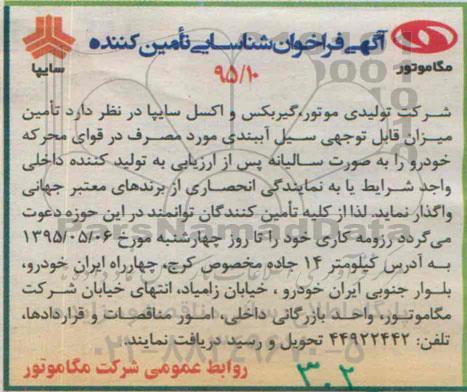 آگهی فراخوان شناسایی تأمین کننده
۹۵/۱۰
مگاموتور
سایپا
شرکت تولیدی موتور،گیربکس و اکسل سایپا در نظر دارد تأمین
میزان قابل توجهی سیل آببندی مورد مصرف در قوای محرکه
خودرو را به صورت سالیانه پس از ارزیابی به تولید کننده داخلی
واجد شرایط یا به نمایندگی انحصاری از برندهای معتبر جهانی
واگذار نماید. لذا از کلیه تأمین کنندگان توانمند در این حوزه دعوت
می‌گردد رزومه کاری خود را تا روز چهارشنبه مورخ ۱۳۹۵/۰۵/۰۶
به آدرس کیلومتر ۱۴ جاده مخصوص کرج، چهارراه ایران خودرو،
بلوار جنوبی ایران خودرو ، خیابان زامیاد، انتهای خیابان شرکت
مگاموتور، واحد بازرگانی داخلی، امور مناقصات و قراردادها،
تلفن: ۴۴۹۲۲۴۴۲ تحویل و رسید دریافت نمایند.
روابط عمومی شرکت مگاموتور
۳۰۲
ParsNamadData
۰۲۱-۸۸۳۴۹۶۷۰-۵